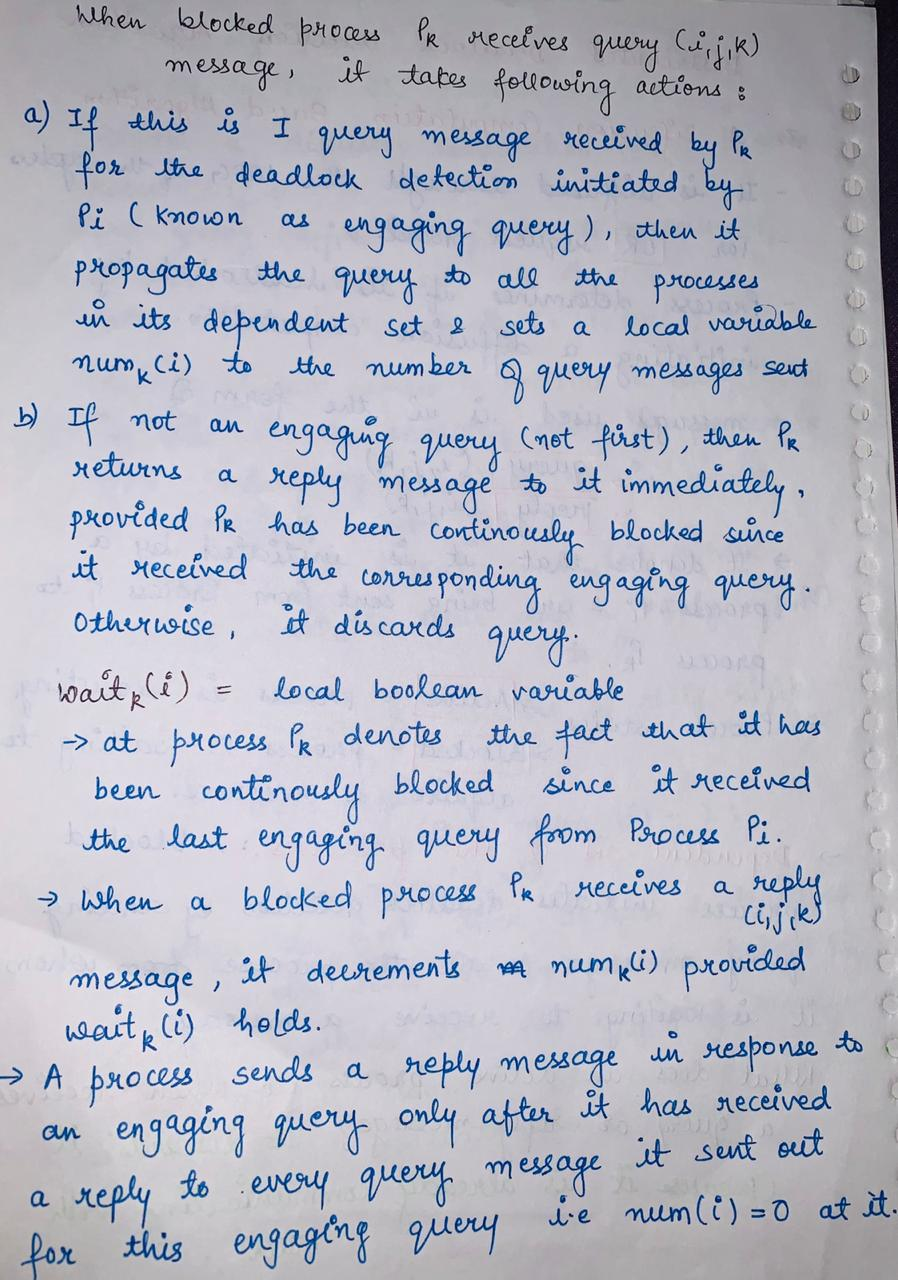 When blocked process Pk receives query (i,j,k)
message, it takes following actions :
a) If this is I query message received by Pk
for the deadlock detection initiated by
Pi ( known as engaging query ), then it
propagates the query to all the processes
in its dependent set & sets a local variable
numk(i) to the number of query messages sent
b) If not an engaging query (not first), then Pk
returns a reply message to it immediately,
provided Pk has been continously blocked since
it received the corresponding engaging query.
Otherwise, it discards query.
waitk(i) = local boolean variable
→ at process Pk denotes the fact that it has
been continously blocked since it received
the last engaging query from Process Pi.
→ When a blocked process Pk receives a reply
(i,j,k)
message, it decrements numk(i) provided
waitk(i) holds.
→ A process sends a reply message in response to
an engaging query only after it has received
a reply to every query message it sent out
for this engaging query i.e num(i) = 0 at it.